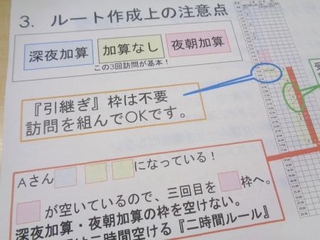 3. ルート作成上の注意点
深夜加算 加算なし 夜朝加算
この3回訪問が基本！
『引継ぎ』枠は不要
訪問を組んでOKです。
Aさん になっている！
が空いているので、三回目を 枠へ。
深夜加算・夜朝加算の枠を空けない。
二時間空ける『二時間ルール』